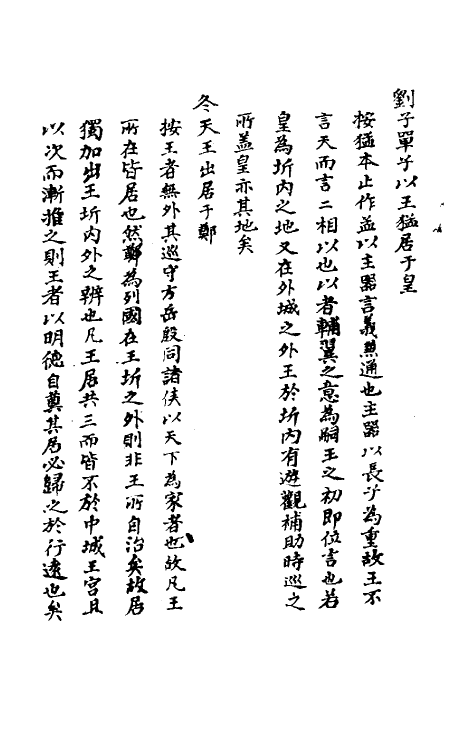 劉子單子以王猛居于皇
按猛本止作孟以主器言義與通也主器以長子為重故王不
言天而言二相以也以者輔翼之意為嗣王之初即位言也若
皇為圻內之地又在外城之外王於圻內有遊觀補助時巡之
所蓋皇亦其地矣
冬天王出居于鄭
按王者無外其巡守方岳殷同諸侯以天下為家者也故凡王
所在皆居也然鄭為列國在王圻之外則非王所自治矣故居
獨加出王圻內外之辨也凡王居共三而皆不於中城王宮且
以次而漸推之則王者以明德自奠其居必歸之於行遠也矣